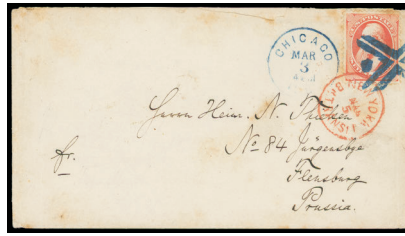 CHICAGO
MAR
3
Herrn Heinr. N.
No 84 Jürgensbye
fr.
Flensburg
Prussia.